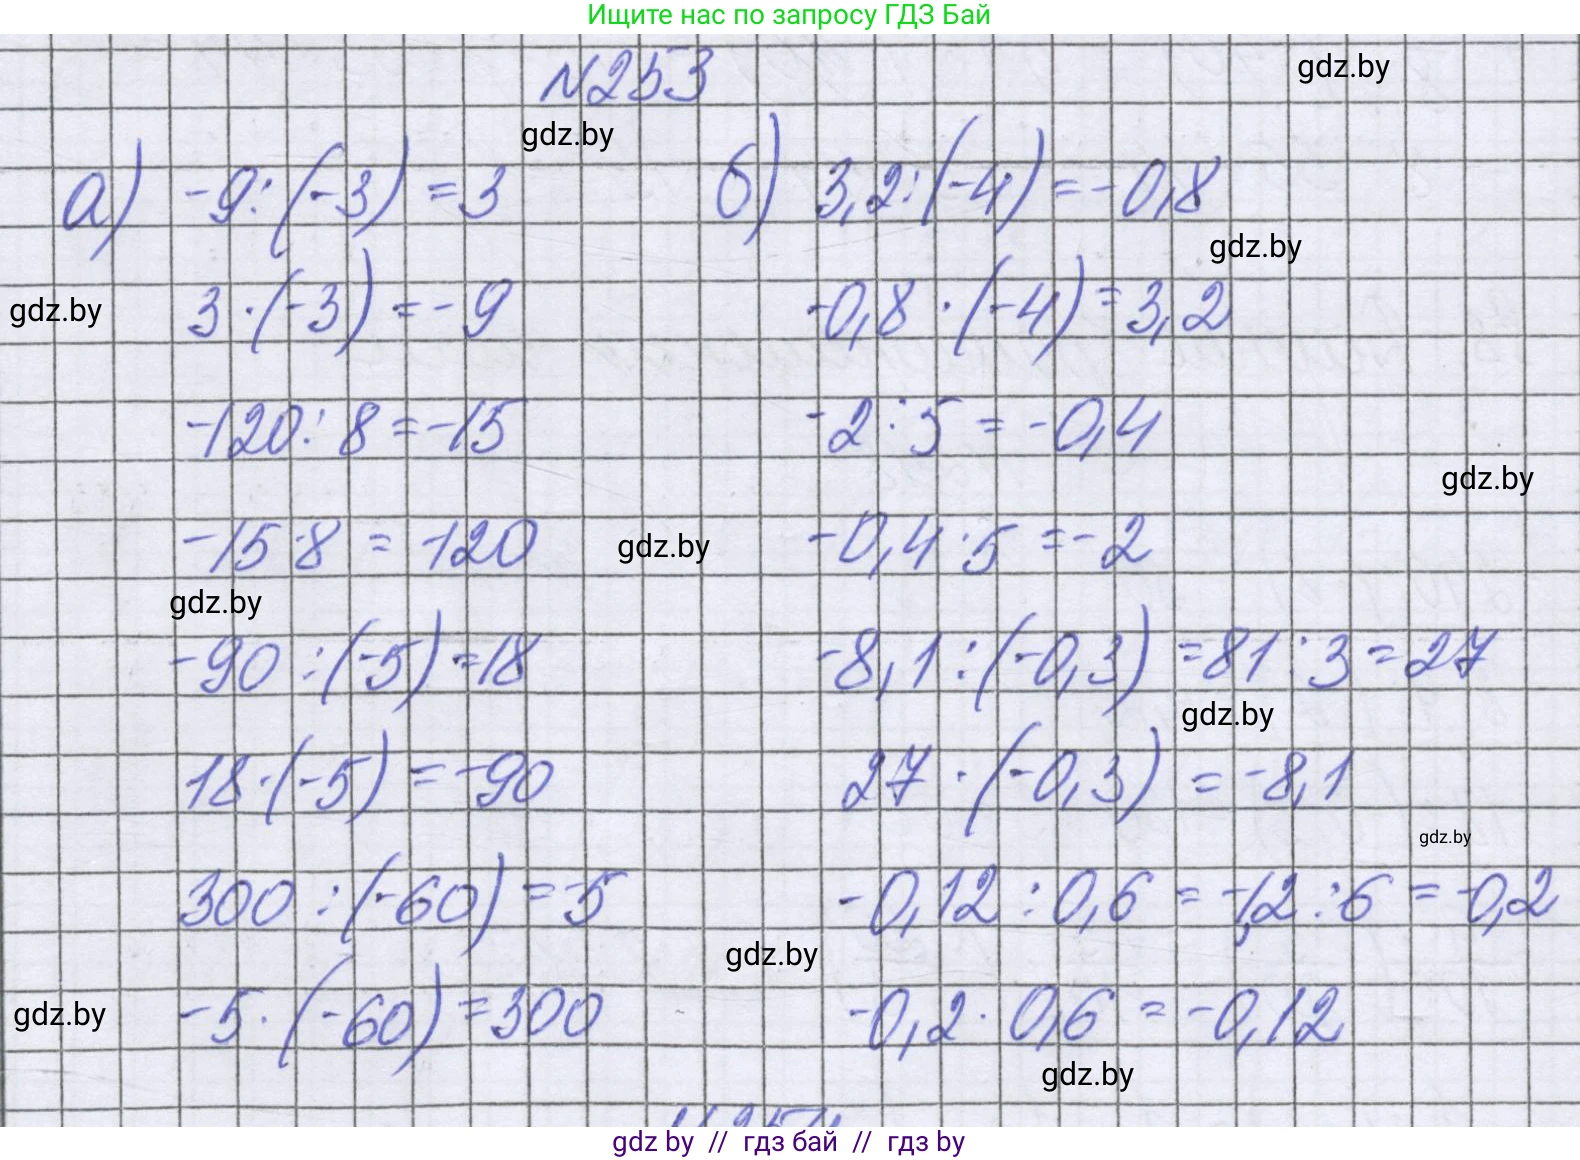 Ищите нас по запросу ГДЗ Бай
№253
gdz.by
gdz.by
а) -9:(-3)=3
б) 3,2:(-4)=-0,8
gdz.by
gdz.by
3·(-3)=-9
-0,8·(-4)=3,2
-120:8=-15
-2:5=-0,4
gdz.by
-15·8=-120
gdz.by
-0,4·5=-2
gdz.by
-90:(-5)=18
-8,1:(-0,3)=81:3=27
gdz.by
18·(-5)=-90
27·(-0,3)=-8,1
gdz.by
300:(-60)=-5
-0,12:0,6=-1,2:6=-0,2
gdz.by
gdz.by
-5·(-60)=300
-0,2·0,6=-0,12
gdz.by
gdz by // гдз бай // гдз by